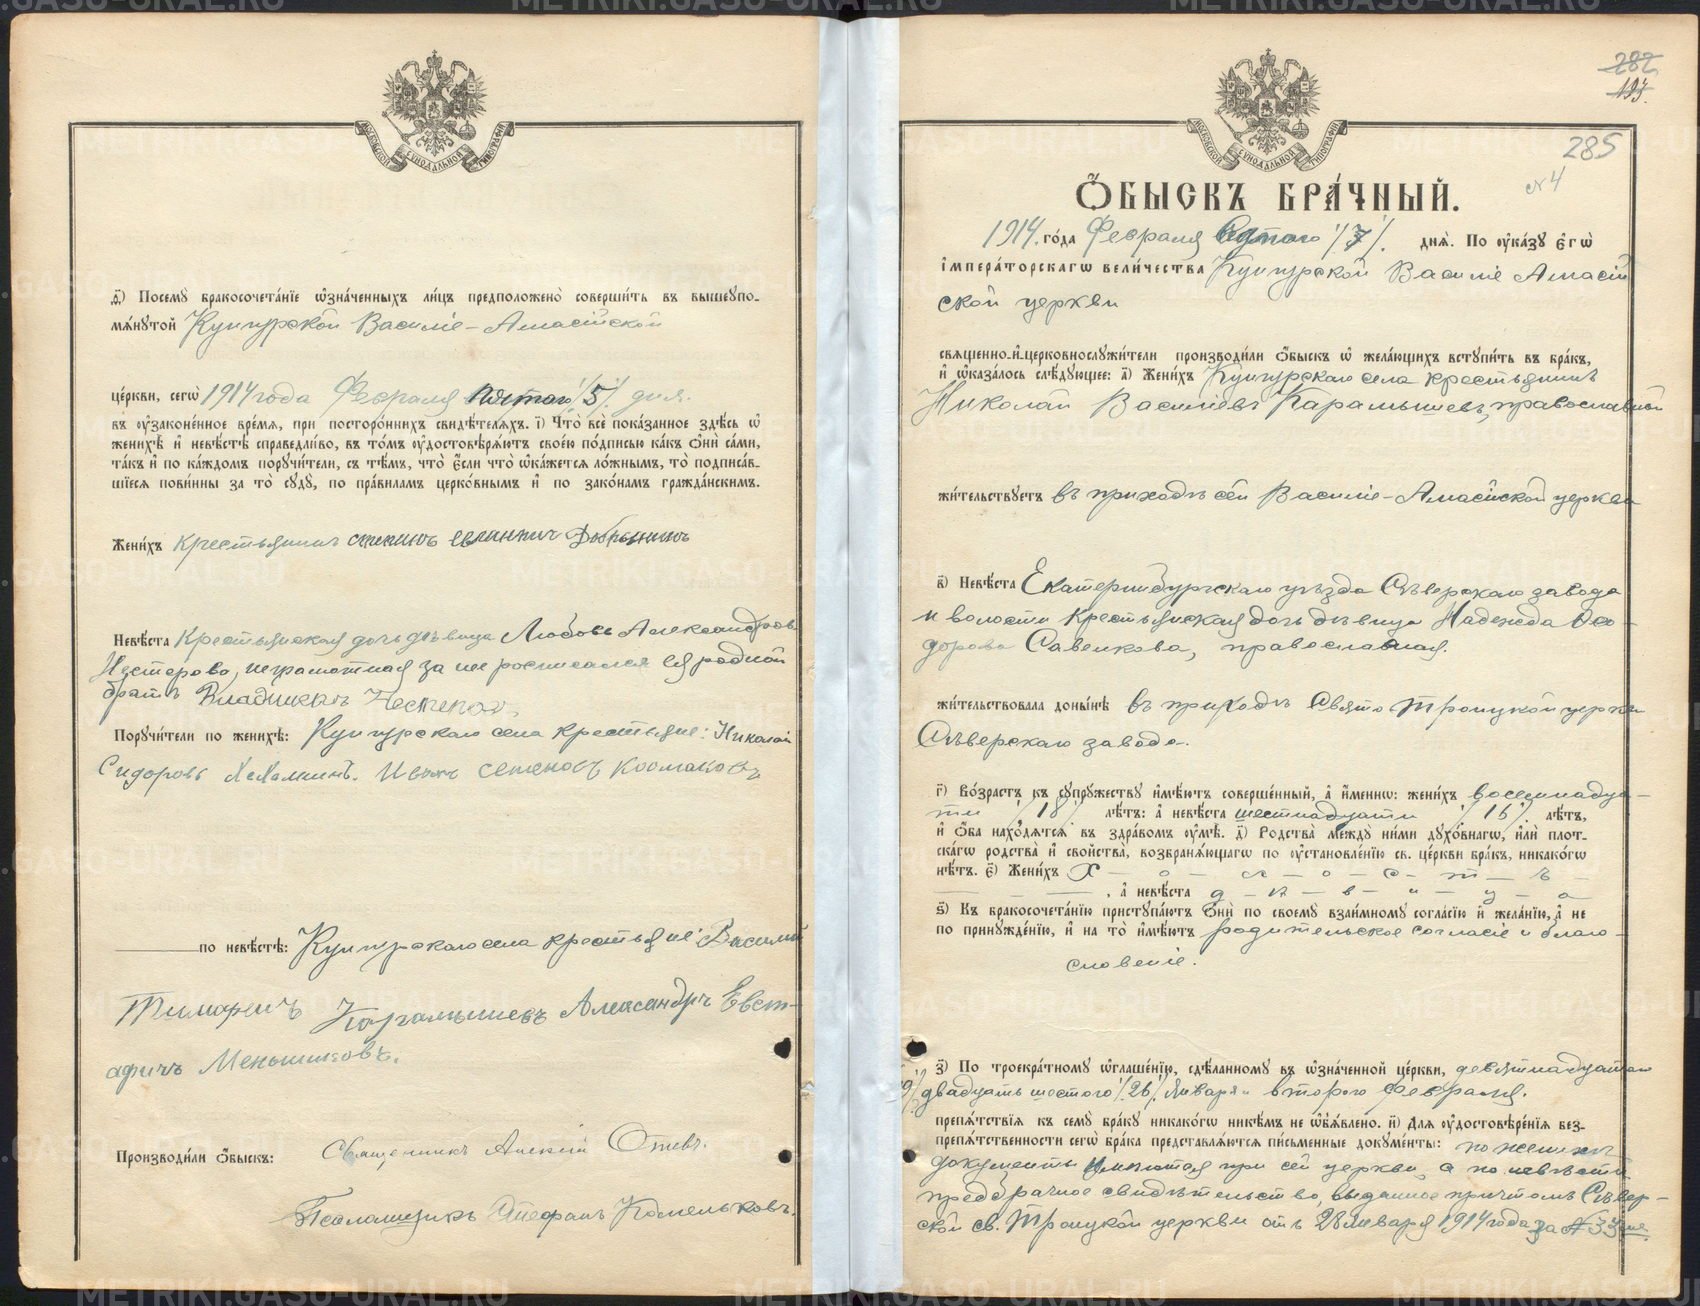 МОСКОВСКОЙ СѴНОДАЛЬНОЙ ТИПОГРАФІИ
д҃) Посемꙋ бракосочета́нїе ѡ҆зна́ченныхъ ли́цъ предположено̀ соверши́ть въ вышеꙋпо-
мѧ́нꙋтой Кунгурской Василіе-Амасійской
це́ркви, сегѡ̀ 1914 года Февраля пятаго /5/ дня.
въ ᲂу҆зако́ненное вре́мѧ, при посторо́ннихъ свидѣ́телѧхъ. і҃) Что̀ всѐ пока́занное здѣ́сь ѡ҆
женихѣ̀ и҆ невѣ́стѣ справедли́во, въ то́мъ ᲂу҆достовѣрѧ́ютъ свое́ю по́дписью ка́къ ѻ҆нѝ са́ми,
та́къ и҆ по ка́ждомъ порꙋчи́тели, съ тѣ́мъ, что̀ є҆́сли что̀ ѡ҆ка́жетсѧ ло́жнымъ, то̀ подписа́в-
шїесѧ пови́нны за то̀ сꙋдꙋ̀, по пра́виламъ церко́внымъ и҆ по зако́намъ гражда́нскимъ.
Жени́хъ крестьянинъ
Невѣ́ста Крестьянская дочь дѣвица Любовь Александрова
Нестерова, неграмотная за нее росписался ея родной
братъ Владимеръ Нестеров
Порꙋчи́тели по женихѣ̀: Кунгурскаго села крестьяне: Николай
Сидоровъ Иванъ Семеновъ
по невѣ́стѣ: Кунгурскаго села крестьяне: Василий
Тимофеичъ Карамышевъ Александръ Евст-
афичъ Меньшиковъ.
Производи́ли ѻ҆́быскъ: Священникъ Алексій
Псаломщикъ Стефанъ
282
197.
285
№ 4
МОСКОВСКОЙ СѴНОДАЛЬНОЙ ТИПОГРАФІИ
Ѻ҆́БЫСКЪ БРА́ЧНЫЙ.
1914. го́да Февраля /7/. днѧ̀. По ᲂу҆ка́зꙋ є҆гѡ̀
і҆мпера́торскагѡ вели́чества Кунгурской Василіе Амасій
ской церкви
свѧще́нно-и҆-церковнослꙋжи́тели производи́ли ѻ҆́быскъ ѡ҆ жела́ющихъ встꙋпи́ть въ бра́къ,
и҆ ѡ҆каза́лось слѣ́дꙋющее: а҃) Жени́хъ Кунгурскаго села крестьянинъ
Николай Василіевъ Карамышевъ, православной
жи́тельствꙋетъ въ приходѣ сей Василіе-Амасійской церкви
в҃) Невѣ́ста Екатеринбургскаго уѣзда Сѣверскаго завода
и волости крестьянская дочь дѣвица Надежда Ѳео-
дорова Савенкова, православная.
жи́тельствовала доны́нѣ въ приходѣ Свято Троицкой церкви
Сѣверскаго завода.
г҃) Во́зрастъ къ сꙋпрꙋ́жествꙋ и҆мѣ́ютъ соверше́нный, а҆ и҆́меннѡ: жени́хъ восемнадца-
ти /18/ лѣ́тъ: а҆ невѣ́ста шестнадцати /16/ лѣ́тъ,
и҆ ѻ҆́ба нахо́дѧтсѧ въ здра́вомъ ᲂу҆мѣ̀. д҃) Родства̀ междꙋ̀ ни́ми дꙋхо́внагѡ, и҆лѝ пло́т-
ска́гѡ родства̀ и҆ сво́йства̀, возбранѧ́ющагѡ по ᲂу҆становле́нїю св. це́ркви бра́къ, никако́гѡ
нѣ́тъ. є҃) Жени́хъ Х — о — л — о — с — т — ъ —
, а҆ невѣ́ста д — ѣ — в — и — ц — а
ѕ҃) Къ бракосочета́нїю пристꙋпа́ютъ ѻ҆нѝ по своемꙋ̀ взаи́мномꙋ согла́сїю и҆ жела́нїю, а҆ не
по принꙋжде́нїю, и҆ на то̀ и҆мѣ́ютъ родительское согласіе и благо-
словеніе.
з҃) По троекра́тномꙋ ѡ҆глаше́нїю, сдѣ́ланномꙋ въ ѡ҆зна́ченной це́ркви, девятнадцатаго
/19/ двадцать шестого /26/ Января и второго Февраля.
препѧ́тствїѧ къ семꙋ̀ бра́кꙋ никако́гѡ никѣ́мъ не ѡ҆б̾ѧ́влено. и҃) Длѧ ᲂу҆достовѣре́нїѧ без-
препѧ́тственности сегѡ̀ бра́ка представлѧ́ютсѧ пи́сьменные докꙋме́нты: по женихѣ
документы имѣются при сей церкви, а по невѣстѣ
предбрачное свидѣтельство, выданное причтомъ Сѣвер-
ской св. Троицкой церкви отъ 28 января 1914 года за № 33
METRIKI.GASU-URAL.RU